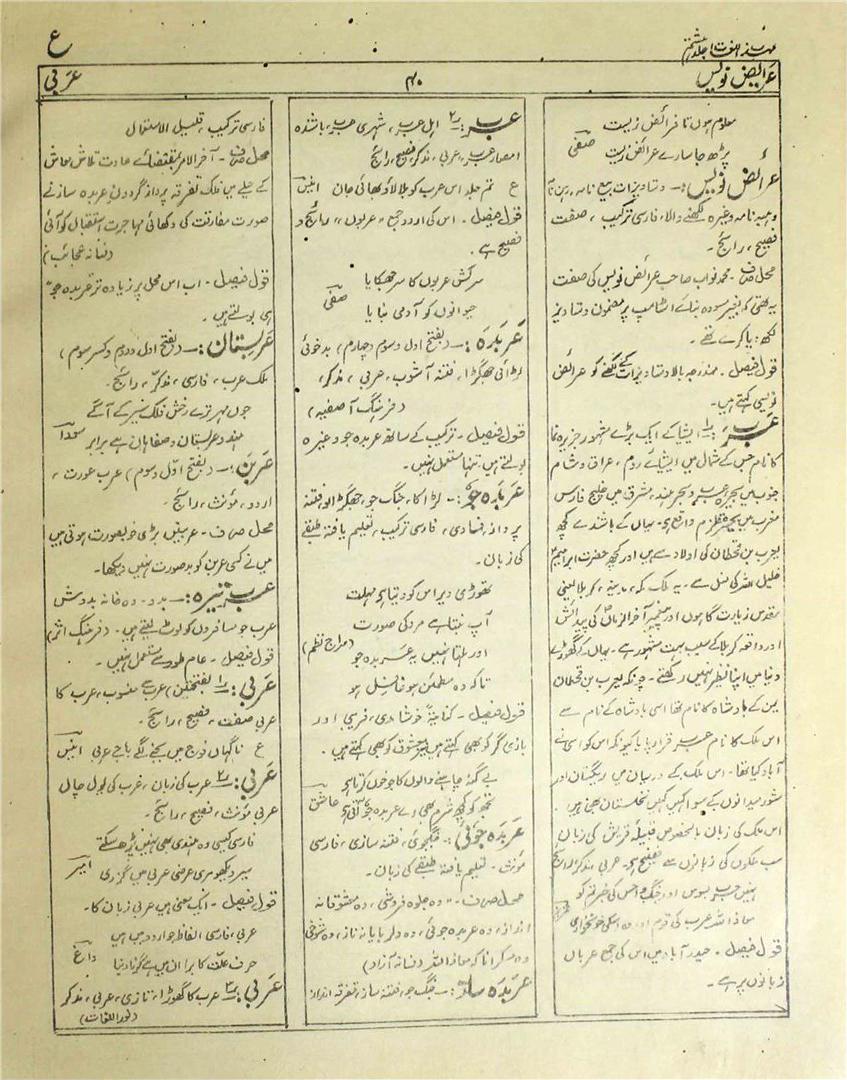 مہذب اللغات جلد ہشتم
ع
عرائض نویس
۴۰
عربی
معلوم ہوں تا فرائض زیست
پڑھ جا سارے عرائض زیست صفی
عرائض نویس :- دستاویزات بیع نامہ، رہن نامہ
وہبہ نامہ وغیرہ لکھنے والا، فارسی ترکیب، صفت
فصیح، رائج۔
محل صرف۔ محمد نواب صاحب عرائض نویس کی صفت
یہ تھی کہ بغیر مسودہ بنائے اسٹامپ پر مضمون دستاویز
لکھ دیا کرتے تھے۔
قول فیصل۔ مندرجہ بالا دستاویزات کے لکھنے کو عرائض
نویسی کہتے ہیں۔
عرب :۱ ایشیا کے ایک بڑے مشہور جزیرہ نما
کا نام جس کے شمال میں ایشیائے روم، عراق و شام
جنوب میں بحیرہ عرب و بحر ہند، مشرق میں خلیج فارس
مغرب میں بحیرہ قلزم واقع ہے۔ یہاں کے باشندے کچھ
یعرب بن قحطان کی اولاد سے ہیں اور کچھ حضرت ابراہیم
خلیل اللہ کی نسل سے۔ یہ ملک مکہ، مدینہ، کربلا یعنی
مقدس زیارت گاہوں اور پیغمبر آخر الزماں کی پیدائش
اور واقعہ کربلا کے سبب بہت مشہور ہے۔ یہاں کے گھوڑے
دنیا میں اپنا نظیر نہیں رکھتے۔ چونکہ یعرب بن قحطان
یمن کے بادشاہ کا نام تھا اسی بادشاہ کے نام سے
اس ملک کا نام عرب قرار پایا کیونکہ اس کو اسی نے
آباد کیا تھا۔ اس ملک کے درمیان میں ریگستان اور
شور میدانوں کے سوا کہیں کہیں نخلستان بھی ہیں۔
اس ملک کی زبان بالخصوص قبیلہ قریش کی زبان
سب ملکوں کی زبانوں سے فصیح ہے۔ عربی مذکر رائج
معاذ اللہ عرب کی قوم اور وہ اسکی خونخواری
قول فیصل۔ حیدر آباد میں اس کی جمع عربان
زبانوں پر ہے۔
عرب :۲ اہل عرب، شہری عرب، باشندہ
امصار عرب، عربی، مذکر، فصیح، رائج
ع تم جلد اس عرب کو بلا لاؤ بھائی جان انیس
قول فیصل۔ اس کی اردو جمع "عربوں" رائج و
فصیح ہے۔
سرکش عربوں کا سر جھکایا
حیوانوں کو آدمی بنایا صفی
عربدہ :- (بفتح اول و سوم و چہارم) بدخوئی
لڑائی جھگڑا، فتنہ آشوب، عربی، مذکر،
(فرہنگ آصفیہ)
قول فیصل۔ ترکیب کے ساتھ عربدہ جو وغیرہ
بولتے ہیں، تنہا مستعمل نہیں۔
عربدہ جو :- لڑاکا، جنگ جو، جھگڑالو، فتنہ
پرداز، فسادی، فارسی ترکیب، تعلیم یافتہ طبقے
کی زبان۔
تھوڑی دیر اس کو دینا ہے مہلت
آپ بنتا ہے مرد کی صورت
اور ملتا نہیں یہ عربدہ جو (معراج نظم)
تاکہ وہ مطمئن ہو غافل ہو
قول فیصل۔ کنایتہ خوشامدی، فریبی اور
بازی گر کو بھی کہتے ہیں نیز معشوق کو بھی کہتے ہیں۔
بے گنہ چاہنے والوں کا جو خوں کرتا ہے
تجھ کو کچھ شرم بھی اے عربدہ جو آتی ہے عاشق
عربدہ جوئی :- جنگجوئی، فتنہ سازی، فارسی
مؤنث۔ تعلیم یافتہ طبقے کی زبان۔
محل صرف۔ "وہ جلوہ فروشی، وہ معشوقانہ
انداز، وہ عربدہ جوئی، وہ دلربایانہ ناز، وہ شوخی
وہ مسکرانا کہ معاذ اللہ (فسانۂ آزاد)
عربدہ ساز :- جنگ جو، فتنہ ساز، تفرقہ انداز
فارسی ترکیب، قلیل الاستعمال
محل صرف۔ آخر الامر بمقتضائے عادت تلاش معاش
کے حیلے میں فلک تفرقہ پرداز گردون عربدہ ساز نے
صورت مفارقت کی دکھائی مہاجرت استقبال کو آئی
(فسانۂ عجائب)
قول فیصل۔ اب اس محل پر زیادہ تر "عربدہ جو"
ہی بولتے ہیں۔
عربستان :- (بفتح اول و دوم و کسر سوم)
ملک عرب، فارسی، مذکر، رائج۔
جوں مہر ترے رخش فلک سیر کے آگے
ہند و عربستان و صفاہاں ہے برابر سودا
عربن :- (بفتح اول و سوم) عرب عورت،
اردو، مؤنث، رائج۔
محل صرف۔ عربنیں بڑی خوبصورت ہوتی ہیں
میں نے کسی عربن کو بدصورت نہیں دیکھا۔
عرب نیزہ :- بدو۔ وہ خانہ بدوش
عرب جو مسافروں کو لوٹ لیتے ہیں۔ (فرہنگ اثر)
قول فیصل۔ عام طور سے مستعمل نہیں۔
عربی :۱ (بفتحتین) عرب سے منسوب، عرب کا
عربی صفت، فصیح، رائج۔
ع ناگہاں فوج میں بجنے لگے باجے عربی انیس
عربی :۲ عرب کی زبان، عرب کی بول چال
عربی مؤنث، فصیح، رائج۔
فارسی کیسی وہ ہندی بھی نہیں پڑھ سکتے
سیر دیکھو مری عرضی عربی میں گزری اسیر
قول فیصل۔ ایک معنی ہیں عربی زبان کا۔
عربی، فارسی الفاظ جو اردو میں ہیں
حرف علت کا برا ان میں ہے گرنا دبنا داغ
عربی :۳ عرب کا گھوڑا، تازی، عربی، مذکر
(نور اللغات)